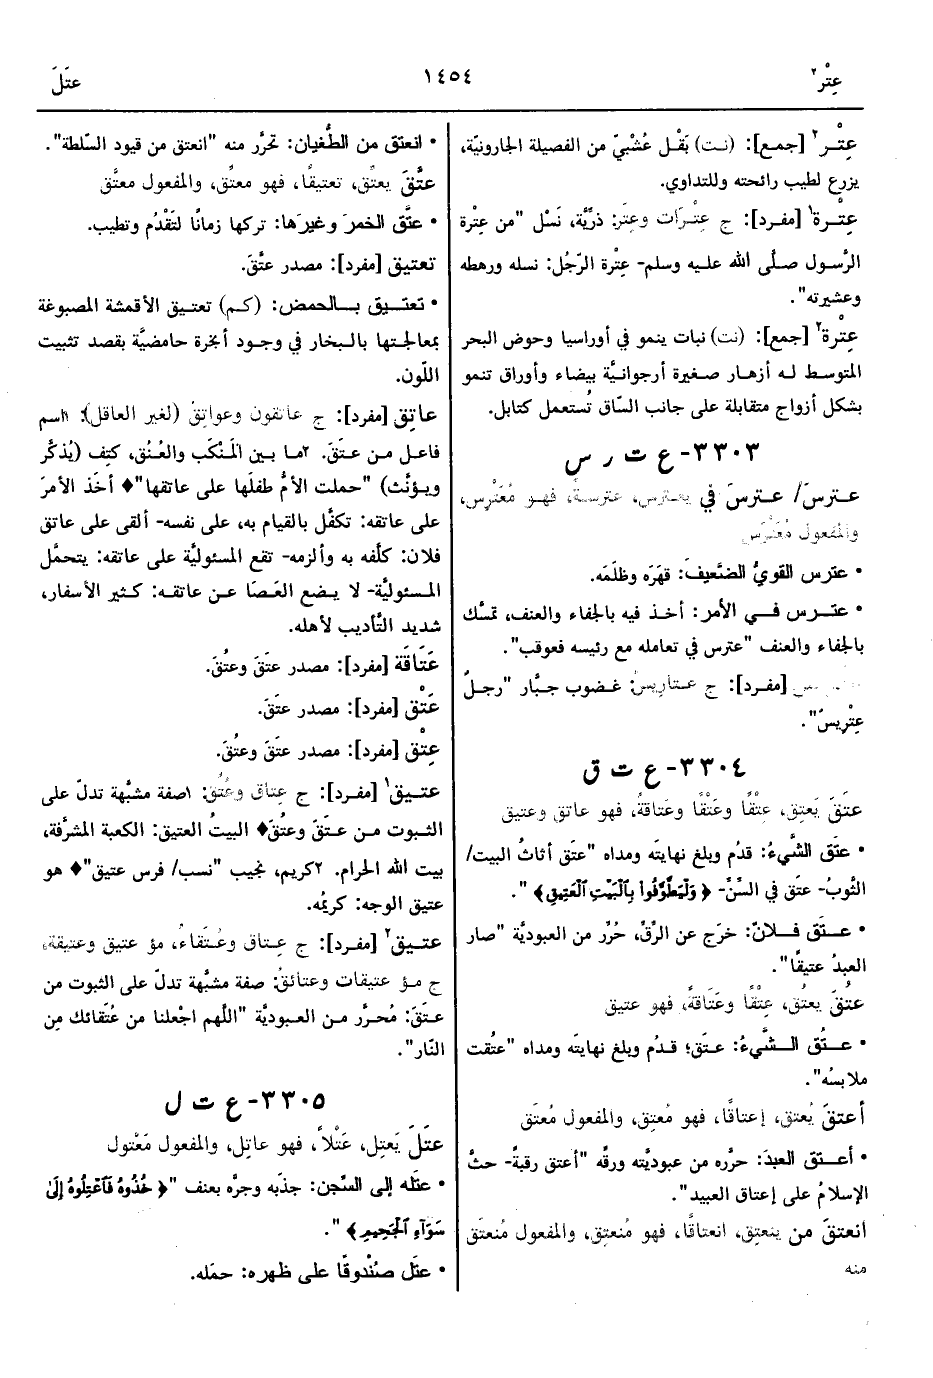 عِتْر٢
١٤٥٤
عتَلَ
عِتْر٢ [جمع]: (نت) بَقْل عُشْبيّ من الفصيلة الجارونيّة،
يزرع لطيب رائحته وللتداوي.
عِتْرة١ [مفرد]: ج عِتْرَات وعِتَر: ذرّيَّة، نَسْل "من عِتْرة
الرَّسول صلَّى الله عليه وسلم- عِتْرة الرّجُل: نسله ورهطه
وعشيرته".
عِتْرة٢ [جمع]: (نت) نبات ينمو في أوراسيا وحوض البحر
المتوسط له أزهار صغيرة أرجوانيَّة بيضاء وأوراق تنمو
بشكل أزواج متقابلة على جانب السّاق تُستعمل كتابل.
٣٣٠٣- ع ت ر س
عترسَ/ عترسَ في يعترس، عترسةً، فهو مُعَتْرِس،
والمفعول مُعَتْرَس
• عترس القويُّ الضَّعيفَ: قهَرَه وظلَمَه.
• عترس في الأمر: أخذ فيه بالجفاء والعنف، تمسَّك
بالجفاء والعنف "عترس في تعامله مع رئيسه فعوقب".
[مفرد]: ج عتاريسُ: غضوب جبَّار "رجلٌ
عِتْرِيسٌ".
٣٣٠٤- ع ت ق
عتَقَ يَعتِق، عِتْقًا وعَتْقًا وعَتاقةً، فهو عاتق وعتيق
• عتَق الشَّيءُ: قدُم وبلغ نهايته ومداه "عتَق أثاثُ البيت/
الثَّوبُ- عتَق في السِّنِّ- ﴿ وَلْيَطَّوَّفُوا بِالْبَيْتِ الْعَتِيقِ ﴾ ".
• عتَق فلانٌ: خرَج عن الرِّقِّ، حُرِّر من العبوديَّة "صار
العبدُ عتيقًا".
عتُقَ يعتُق، عِتْقًا وعَتَاقةً، فهو عتيق
• عتُق الشَّيءُ: عتَق؛ قدُم وبلغ نهايته ومداه "عتُقت
ملابسُه".
أعتقَ يُعتق، إعتاقًا، فهو مُعتِق، والمفعول مُعتَق
• أعتق العبدَ: حرَّره من عبوديَّته ورقِّه "أعتق رقبةً- حثَّ
الإسلامُ على إعتاق العبيد".
انعتقَ من ينعتِق، انعتاقًا، فهو مُنعتِق، والمفعول مُنعتَق
منه
• انعتق من الطُّغيان: تحرَّر منه "انعتق من قيود السّلطة".
عتَّقَ يعتِّق، تعتيقًا، فهو معتِّق، والمفعول معتَّق
• عتَّق الخمرَ وغيرَها: تركها زمانًا لتَقْدُم وتطيب.
تعتيق [مفرد]: مصدر عتَّقَ.
• تعتيق بالحمض: (كم) تعتيق الأقمشة المصبوغة
بمعالجتها بالبخار في وجود أبخرة حامضيَّة بقصد تثبيت
اللّون.
عاتِق [مفرد]: ج عاتقون وعواتِقُ (لغير العاقل): ١اسم
فاعل من عتَقَ. ٢ما بين المَنْكَب والعُنُق، كتِف (يُذكَّر
ويؤنَّث) "حملت الأمُّ طفلَها على عاتقها"♦ أخَذ الأمرَ
على عاتقه: تكفَّل بالقيام به، على نفسه- ألقى على عاتق
فلان: كلَّفه به وألزمه- تقع المسئوليَّة على عاتقه: يتحمَّل
المسئوليَّة- لا يضع العَصَا عن عاتقه: كثير الأسفار،
شديد التَّأديب لأهله.
عَتَاقَة [مفرد]: مصدر عتَقَ وعتُقَ.
عَتْق [مفرد]: مصدر عتَقَ.
عِتْق [مفرد]: مصدر عتَقَ وعتُقَ.
عتيق١ [مفرد]: ج عِتاق وعُتُق: ١صفة مشبَّهة تدلّ على
الثبوت من عتَقَ وعتُقَ♦ البيتُ العتيق: الكعبة المشرَّفة،
بيت الله الحرام. ٢كريم، نجيب "نسب/ فرس عتيق"♦ هو
عتيق الوجه: كريمُه.
عتيق٢ [مفرد]: ج عِتاق وعُتَقاءُ، مؤ عتيق وعتيقة،
ج مؤ عتيقات وعتائقُ: صفة مشبَّهة تدلّ على الثبوت من
عتَقَ: مُحرَّر من العبوديَّة "اللَّهم اجْعلنا من عُتَقائك مِن
النّار".
٣٣٠٥- ع ت ل
عتَلَ يَعتِل، عَتْلاً، فهو عاتِل، والمفعول مَعْتُول
• عتَله إلى السِّجن: جذبَه وجرَّه بعنف "﴿ خُذُوهُ فَاعْتِلُوهُ إِلَىٰ
سَوَاءِ الْجَحِيمِ ﴾ ".
• عتَل صُنْدوقًا على ظهره: حمَله.